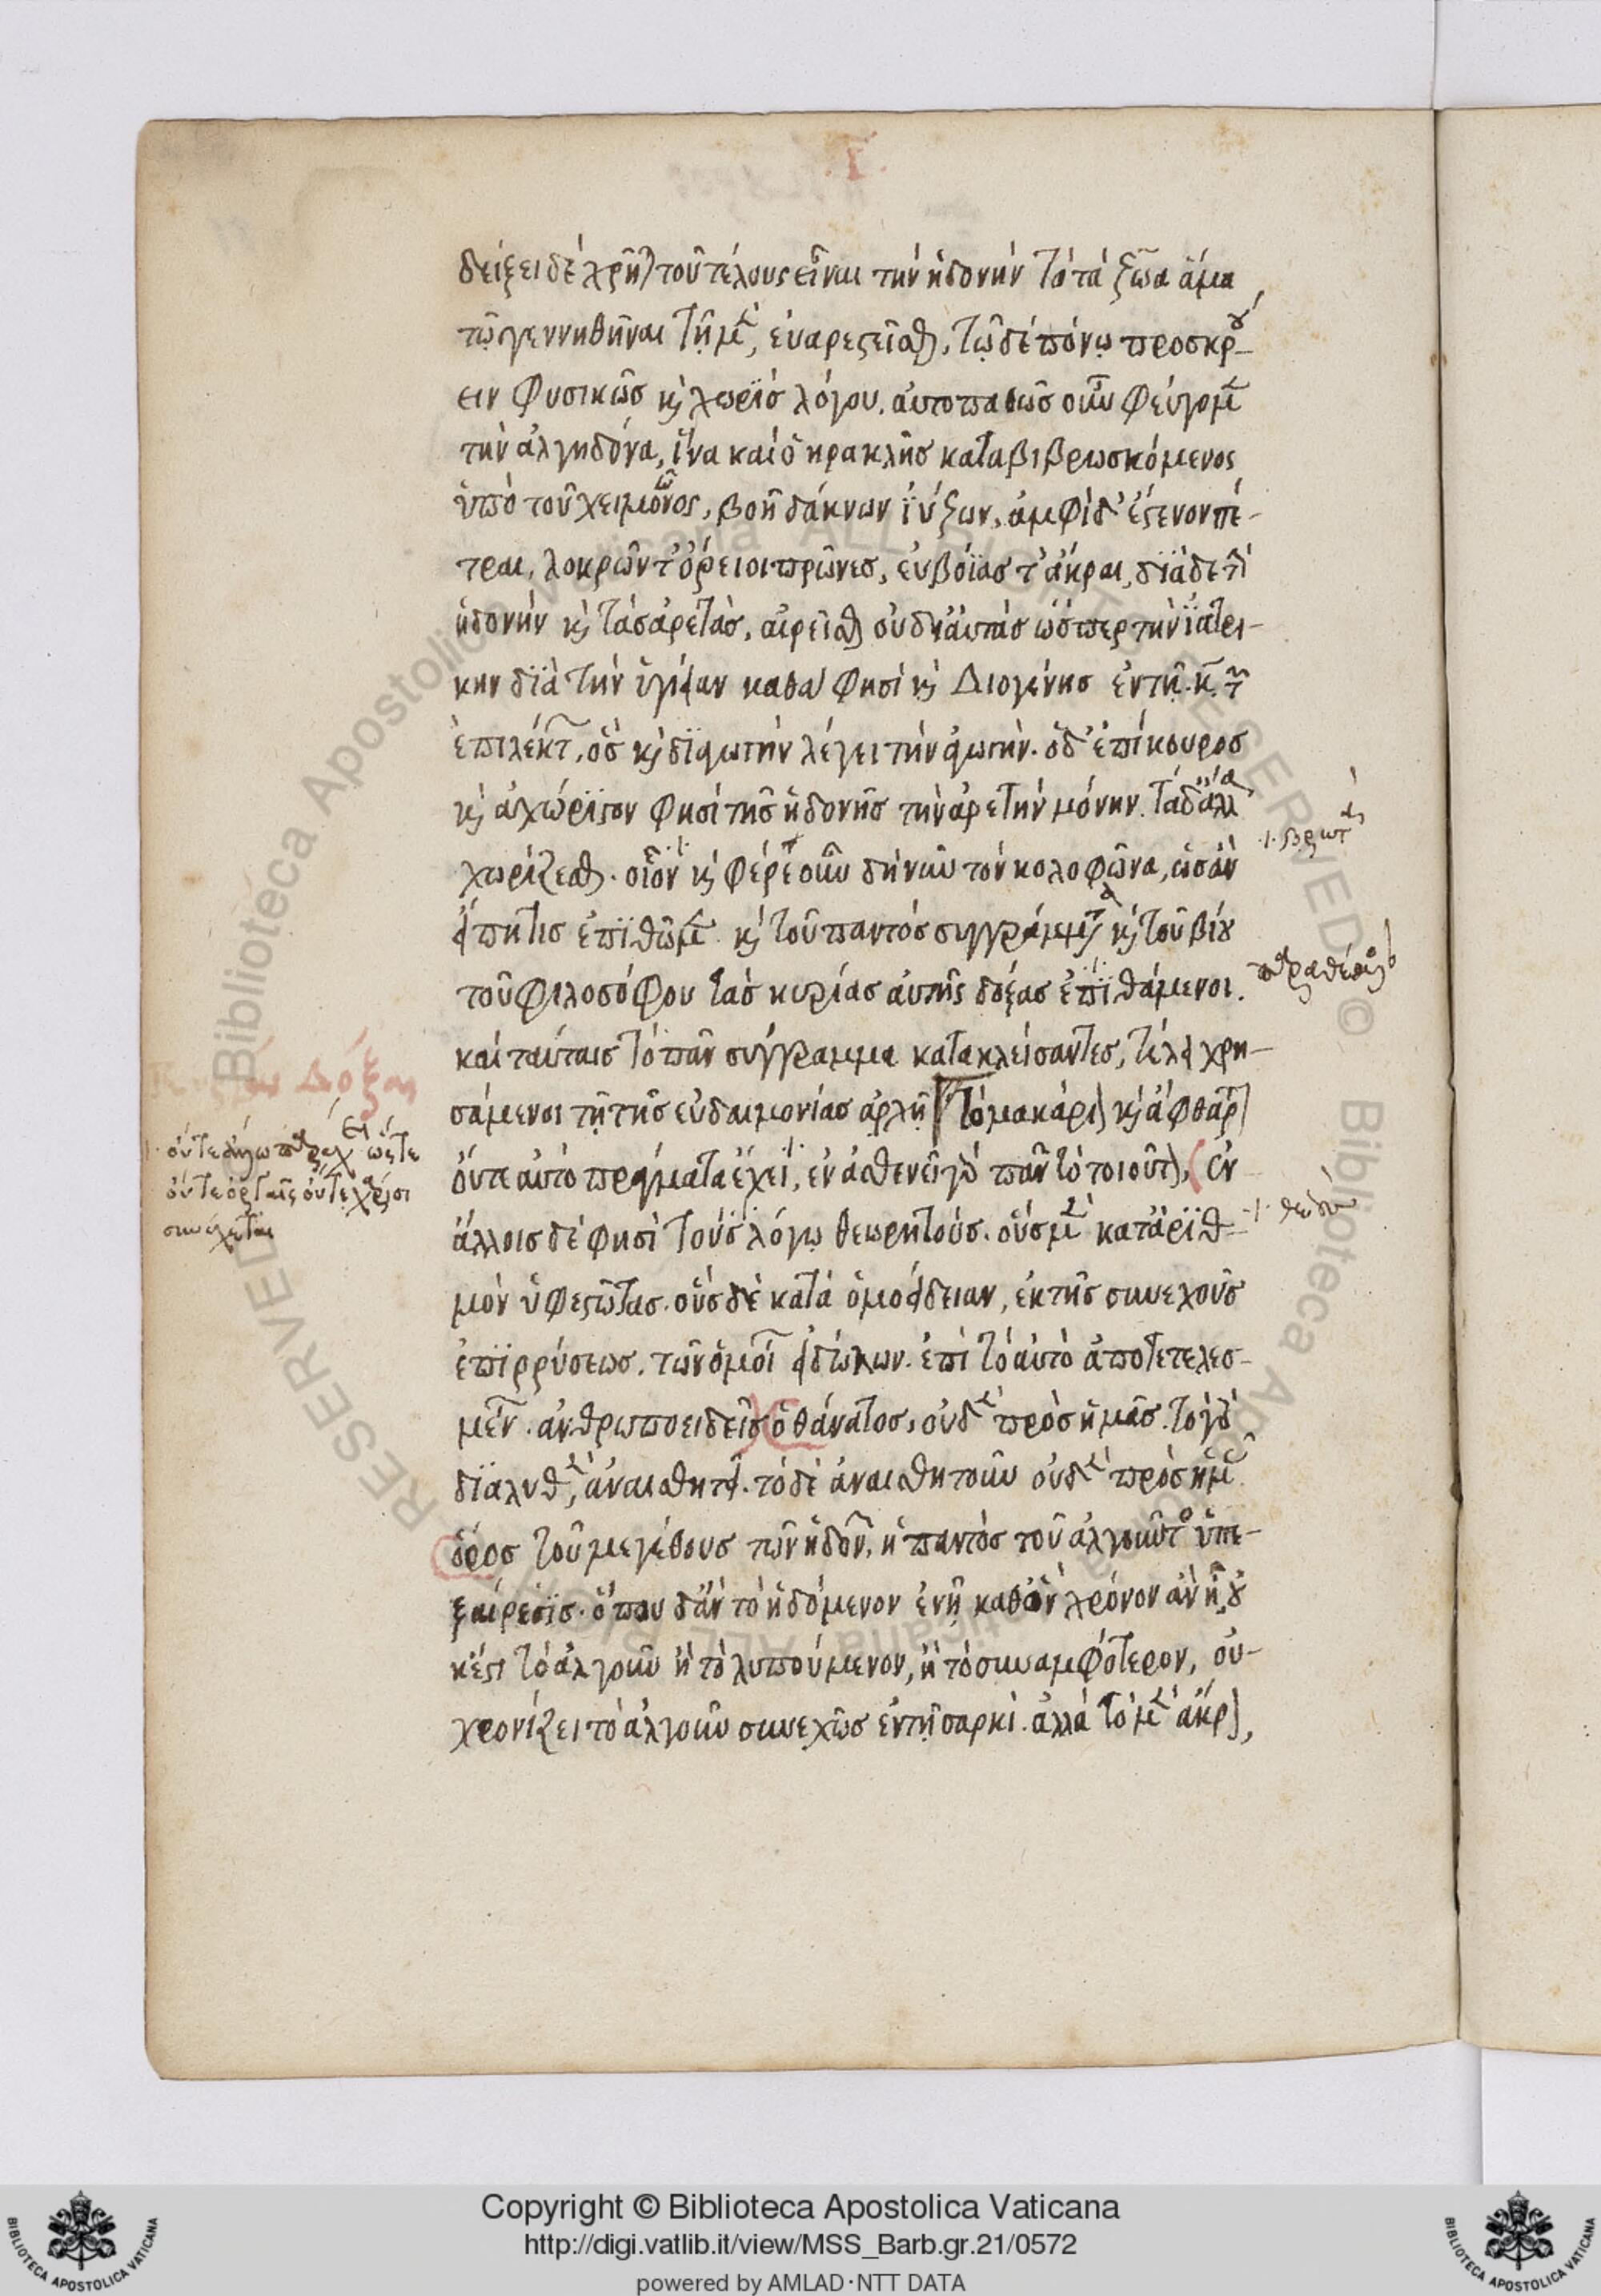 δείξει δὲ χρῆται τοῦ τέλους εἶναι τὴν ἡδονὴν τὸ τὰ ζῶα ἅμα
τῶ γεννηθῆναι τῆ μὲν, εὐαρεστεῖσθαι, τῶ δὲ πόνω προσκρού-
ειν φυσικῶς καὶ χωρὶς λόγου. αὐτοπαθῶς οὖν φεύγομεν
τὴν ἀλγηδόνα, ἵνα καὶ ὁ ἡρακλῆς καταβιβρωσκόμενος
ὑπὸ τοῦ χειμῶνος, βοῆ δάκνων ἰύζων, ἀμφὶ δ' ἔστενον πέ-
τραι, λοκρῶν τ' ὄρειοι πρῶνες, εὐβοίας τ' ἄκραι, διὰ δὲ τὴν
ἡδονὴν καὶ τὰς ἀρετὰς, αἱρεῖσθαι οὐ δι' αὐτὰς ὥσπερ τὴν ἰατρι-
κην διὰ τὴν ὑγίειαν καθά φησὶ καὶ Διογένης ἐν τῆ κ τῶν
ἐπιλέκτων, ὃς καὶ διαγωγὴν λέγει τὴν ἀγωγήν. ὁ δ' ἐπίκουρος
καὶ ἀχώριστον φησὶ τῆς ἡδονῆς τὴν ἀρετὴν μόνην. τὰ δ' ἄλλα
χωρίζεσθαι. οἷον καὶ φέρε οὖν δὴ νῦν τὸν κολοφῶνα, ὡς ἂν
εἴπη τις ἐπιθῶμεν καὶ τοῦ παντὸς συγγράμματος καὶ τοῦ βίου
τοῦ φιλοσόφου τὰς κυρίας αὐτῆς δόξας ἐπιθάμενοι.
καὶ ταύταις τὸ πᾶν σύγγραμμα κατακλείσαντες, τέλει χρη-
σάμενοι τῆ τῆς εὐδαιμονίας ἀρχῆ τὸ μακάριον καὶ ἄφθαρτον
οὔτε αὐτὸ πράγματα ἔχει, ἐν ἀσθενεῖ γὰρ πᾶν τὸ τοιοῦτον, ἐν
ἄλλοις δὲ φησὶ τοὺς λόγω θεωρητούς. οὓς μὲν κατ' ἀριθ-
μὸν ὑφεστῶτας. οὓς δὲ κατὰ ὁμοείδειαν, ἐκ τῆς συνεχοῦς
ἐπιρρύσεως. τῶν ὁμοίων εἰδώλων. ἐπὶ τὸ αὐτὸ ἀποτετελεσ-
μένων. ἀνθρωποειδεῖς ὁ θάνατος, οὐδὲν πρὸς ἡμᾶς. τὸ γὰρ
διαλυθὲν, ἀναισθητεῖ. τὸ δὲ ἀναισθητοῦν οὐδὲν πρὸς ἡμᾶς
ὅρος τοῦ μεγέθους τῶν ἡδονῶν, ἡ παντὸς τοῦ ἀλγοῦντος ὑπε-
ξαίρεσις. ὅπου δ' ἂν τὸ ἡδόμενον ἐνῆ καθ' ὃν χρόνον ἂν ἦ οὐ
κέστι τὸ ἀλγοῦν ἢ τὸ λυπούμενον, ἢ τὸ συναμφότερον, οὐ-
χρονίζει τὸ ἀλγοῦν συνεχῶς ἐν τῆ σαρκὶ. ἀλλὰ τὸ μὲν ἄκρον,
Δόξαι
οὔτε ἄλλω παρέχει ὥστε
οὔτε ὀργαῖς οὔτε χάρισι
συνέχεται
Copyright © Biblioteca Apostolica Vaticana
http://digi.vatlib.it/view/MSS_Barb.gr.21/0572
powered by AMLAD·NTT DATA
BIBLIOTECA APOSTOLICA VATICANA
BIBLIOTECA APOSTOLICA VATICANA